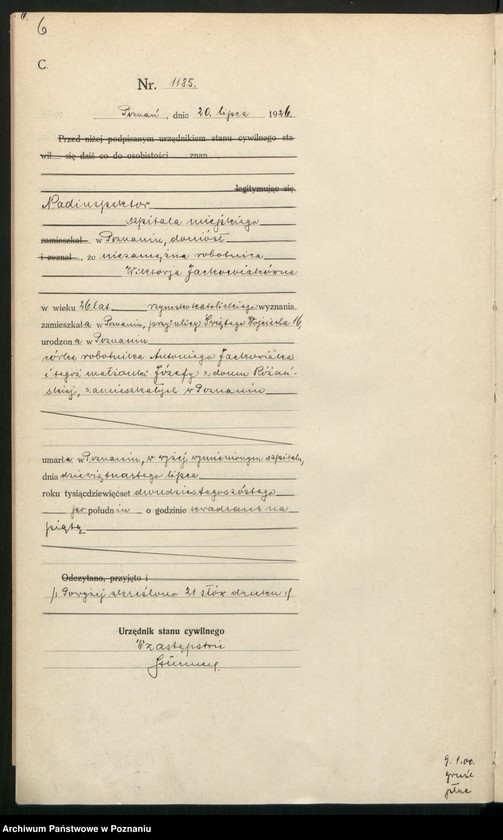 6
C.
Nr. 1185.
Poznań, dnia 20. lipca 1926
Przed niżej podpisanym urzędnikiem stanu cywilnego sta
wił się dziś co do osobistości znan
legitymując się
Nadinspektor
szpitala miejskiego
zamieszkał w Poznaniu, doniósł
i zeznał, że niezamężna robotnica
Wiktorja Jackowiakówna
w wieku 26 lat rzymsko katolickiego wyznania.
zamieszkała w Poznaniu, przy ulicy Świętego Wojciecha 16,
urodzona w Poznaniu
córka robotnika Antoniego Jackowiaka
i tegoż małżonki Józefy z domu Różań-
skiej, zamieszkałych w Poznaniu
umarła w Poznaniu, w wyżej wymienionym szpitalu,
dnia dziewiętnastego lipca
roku tysiącdziewięćset dwudziestegoszóstego
po południu o godzinie kwadrans na
piątą
Odczytano, przyjęto i
/: Powyżej skreślono 21 słów druku :/
Urzędnik stanu cywilnego
W zastępstwie
9. 1.00.
Archiwum Państwowe w Poznaniu